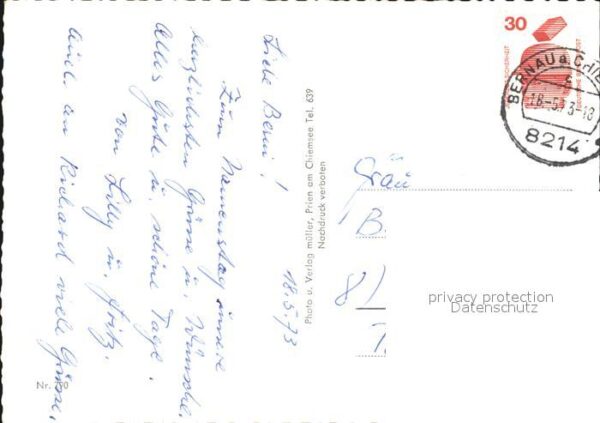 18.5.73
Liebe Beni!
Zum Namenstag unsere
herzlichsten Grüsse u. Wünsche,
Alles Gute u. schöne Tage.
von Lilly u. Fritz.
Auch an Richard viele Grüsse,
Photo u. Verlag müller, Prien am Chiemsee Tel. 639
Nachdruck verboten
Nr. 790
30
DEUTSCHE BUNDESPOST
BERNAU a. CHIE
18.-5.73-18
8214
B.
8
privacy protection
Datenschutz